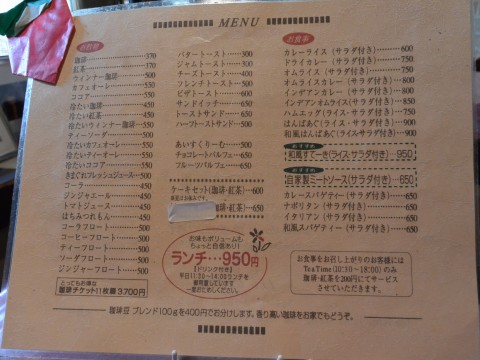 MENU
お飲物
珈琲 370
紅茶 370
ウィンナー珈琲 500
カフェオーレ 550
ココア 550
冷たい珈琲 450
冷たい紅茶 450
冷たいウィンナー珈琲 550
ティーソーダ 500
冷たいカフェオーレ 550
冷たいティーオーレ 550
冷たいココア 550
きまぐれフレッシュジュース 500
コーラ 450
ジンジャエール 450
トマトジュース 450
はちみつれもん 450
コーラフロート 500
コーヒーフロート 500
ティーフロート 500
ソーダフロート 500
ジンジャーフロート 500
とってもお得な
珈琲チケット11枚綴 3,700円
バタートースト 300
ジャムトースト 350
チーズトースト 400
フレンチトースト 500
ピザトースト 600
サンドイッチ 650
トーストサンド 650
ハーフトーストサンド 500
あいすくりーむ 500
チョコレートパルフェ 650
フルーツパルフェ 650
ケーキセット(珈琲・紅茶) 600
珈琲・紅茶) 650
お味もボリュームも
ちょっと自信あり!
ランチ…950円
【ドリンク付き】
平日11:30~14:00ランチを
御用意しています
お食事
カレーライス (サラダ付き) 600
ドライカレー (サラダ付き) 700
オムライス (サラダ付き) 750
オムライスカレー (サラダ付き) 800
インデアンカレー (サラダ付き) 800
インデアンオムライス(サラダ付き) 850
ハムエッグ (ライス・サラダ付き) 750
はんばあぐ (ライス・サラダ付き) 900
和風はんばあぐ (ライス・サラダ付き) 900
おすすめ
和風すてーき (ライス・サラダ付き) 950
おすすめ
自家製ミートソース (サラダ付き) 650
カレースパゲティー (サラダ付き) 650
ナポリタン (サラダ付き) 650
イタリアン (サラダ付き) 650
和風スパゲティー (サラダ付き) 650
お食事をお召し上がりのお客様には
Tea Time (10:30~18:00) のみ
珈琲・紅茶を200円にてサービス
させていただきます。
珈琲豆 ブレンド100gを400円でお分けします。香り高い珈琲をお家でもどうぞ。